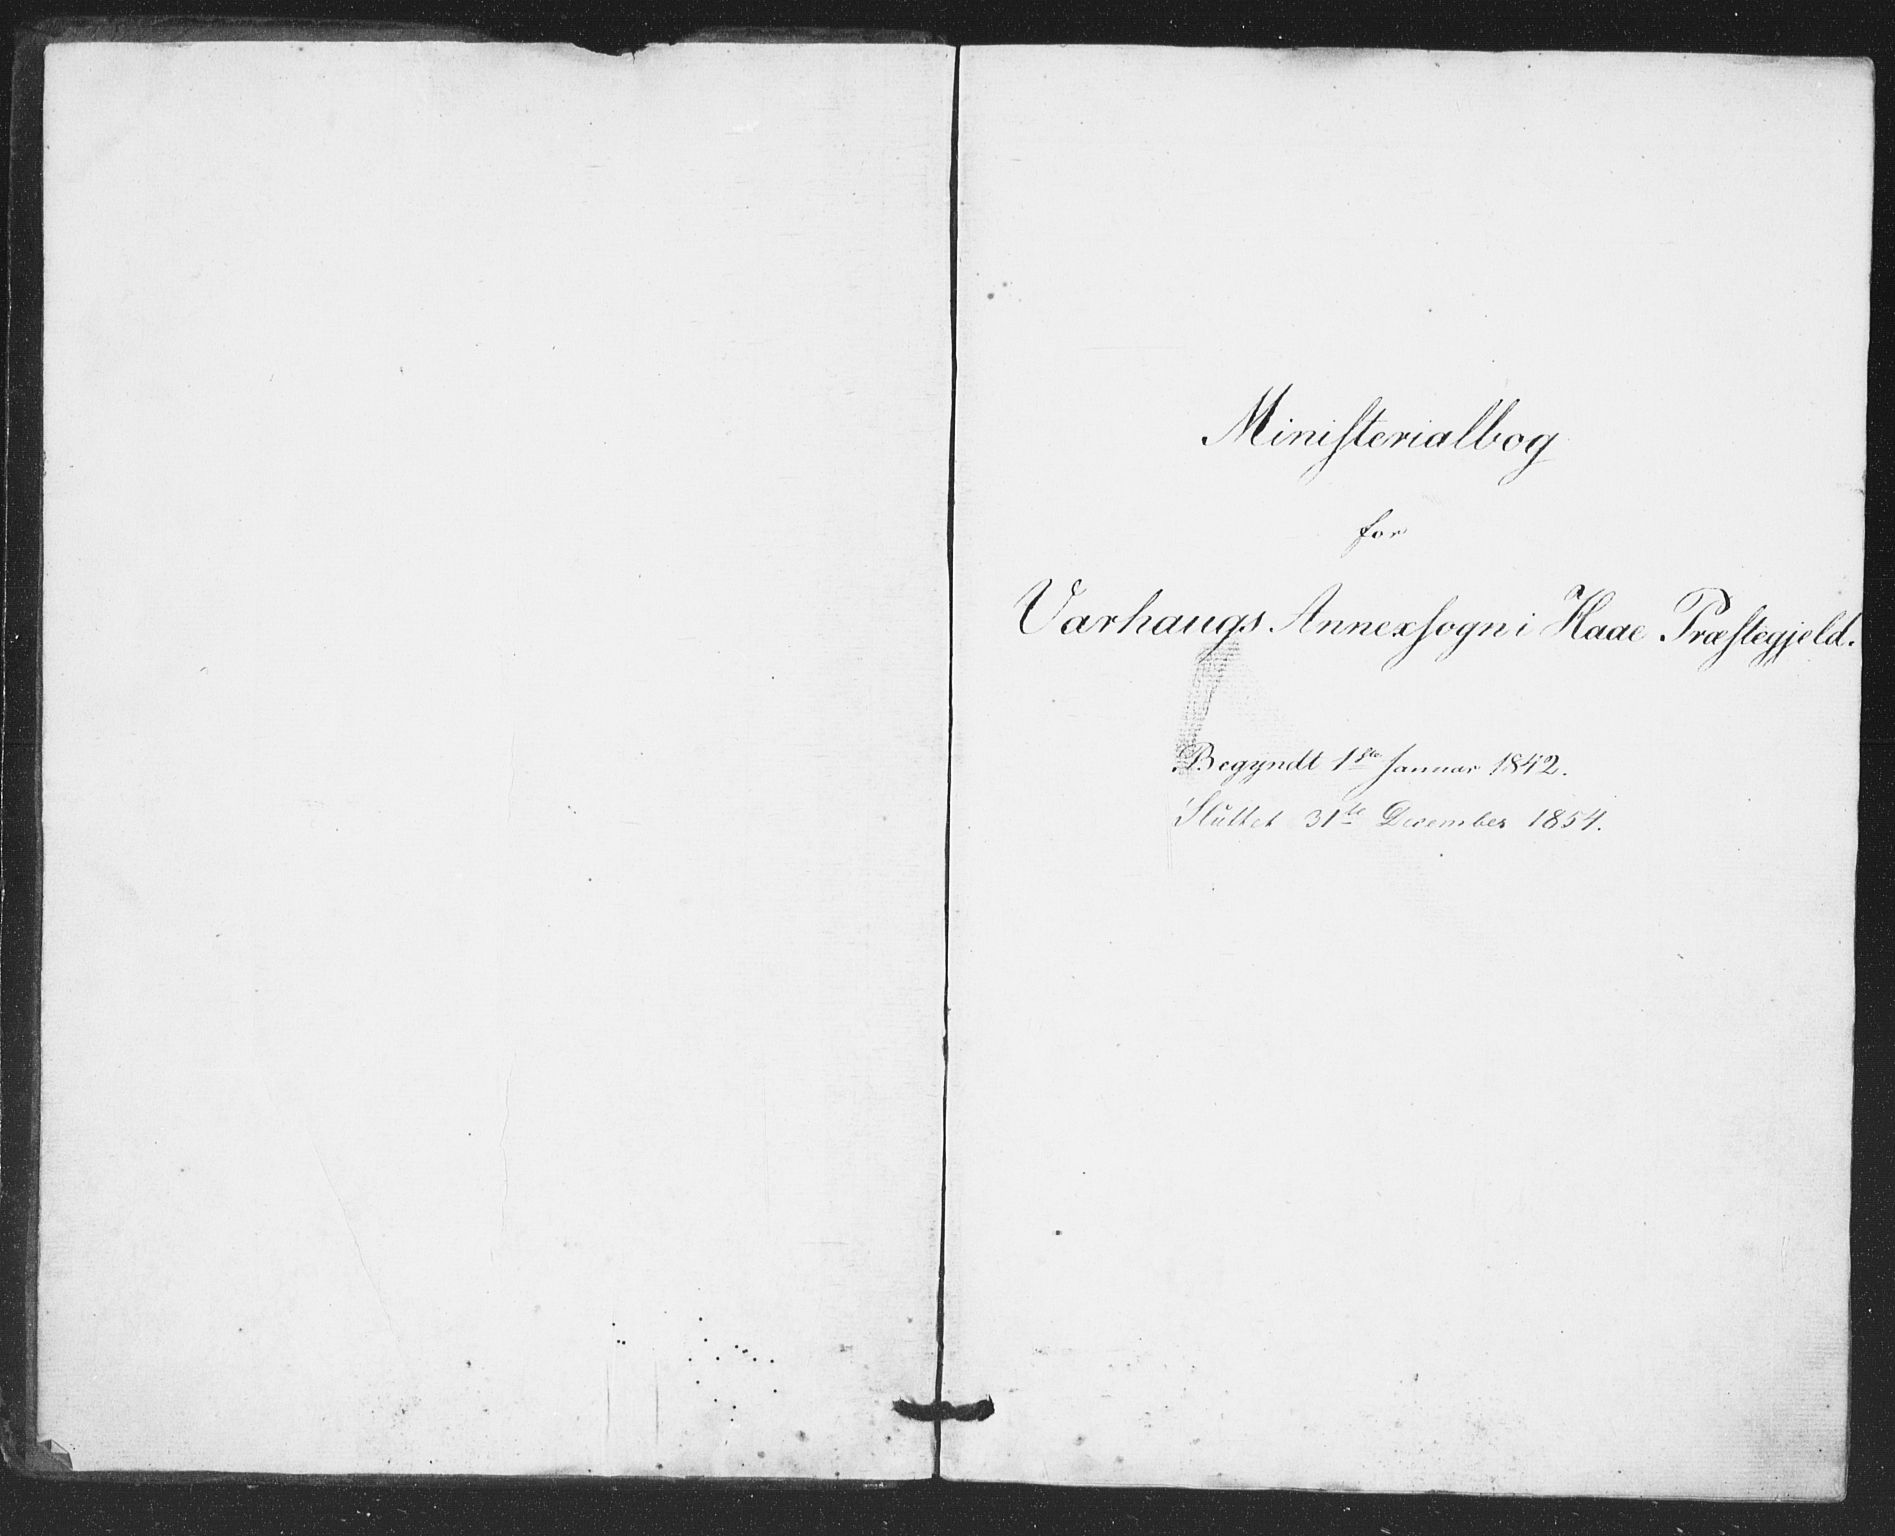 Ministerialbog
for
Varhaugs Annexsogn i Haae Præstegjeld.
Begyndt 1ste Januar 1842.
Sluttet 31te December 1854.